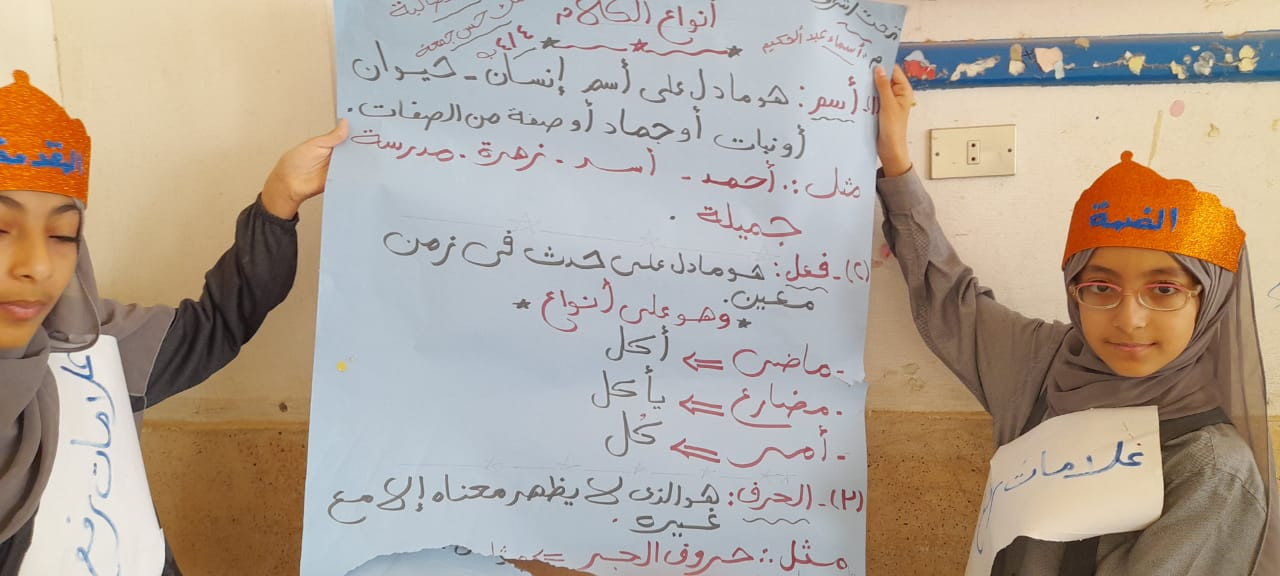 أنواع الكلام
تحت إشراف
أ/ أسماء عبد الحكيم
حسن جمعة
٤/٤
(١) أسم : هو ما دل على أسم إنسان - حيوان
أو نبات أو جماد أو صفة من الصفات .
مثل :. أحمد - أسد . زهرة . مدرسة
جميلة .
(٢) - فعل : هو ما دل على حدث فى زمن
معين .
* وهو على أنواع *
- ماضى ⇐ أكل
- مضارع ⇐ يأكل
- أمر ⇐ كُل
(٣) - الحرف : هو الذى لا يظهر معناه إلا مع
غيره .
مثل :. حروف الجر ⇐
الضمة
علامات
علامات رفع